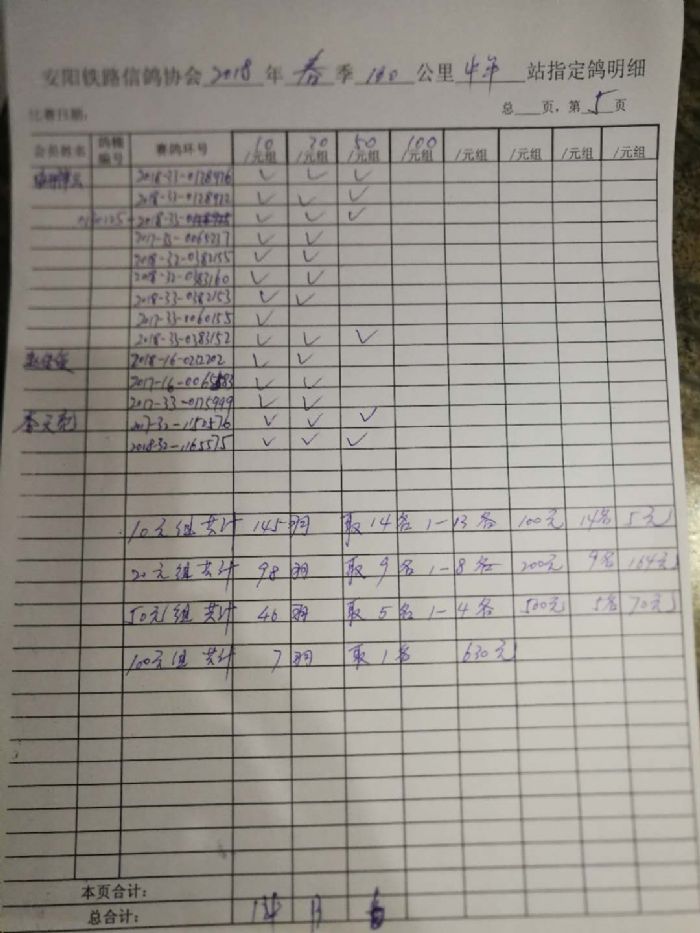 安阳铁路信鸽协会 2018 年 春 季 160 公里 中牟 站指定鸽明细
比赛日期: 总 页，第 5 页
会员姓名 鸽棚编号 赛鸽环号 10/元组 20/元组 50/元组 100/元组 /元组 /元组 /元组 /元组
2018-33-0128976 ✓ ✓ ✓
2018-33-0128972 ✓ ✓ ✓
✓ ✓ ✓
2017-33-0065237 ✓ ✓
2018-32-0382155 ✓ ✓
2018-32-0383160 ✓ ✓
2018-33-0382153 ✓ ✓
2017-33-0060155 ✓
2018-33-0383152 ✓ ✓ ✓
2018-16-0212202 ✓ ✓
✓ ✓
2017-33-0175999 ✓ ✓
2017-32-1152576 ✓ ✓ ✓
2018-32-1165575 ✓ ✓ ✓
10元组共计 145羽 取14名 1-13名 100元 14名 5元
20元组共计 98羽 取9名 1-8名 200元 9名 164元
50元组共计 46羽 取5名 1-4名 500元 5名 70元
100元组共计 7羽 取1名 630元
本页合计:
总合计: 14 13 6